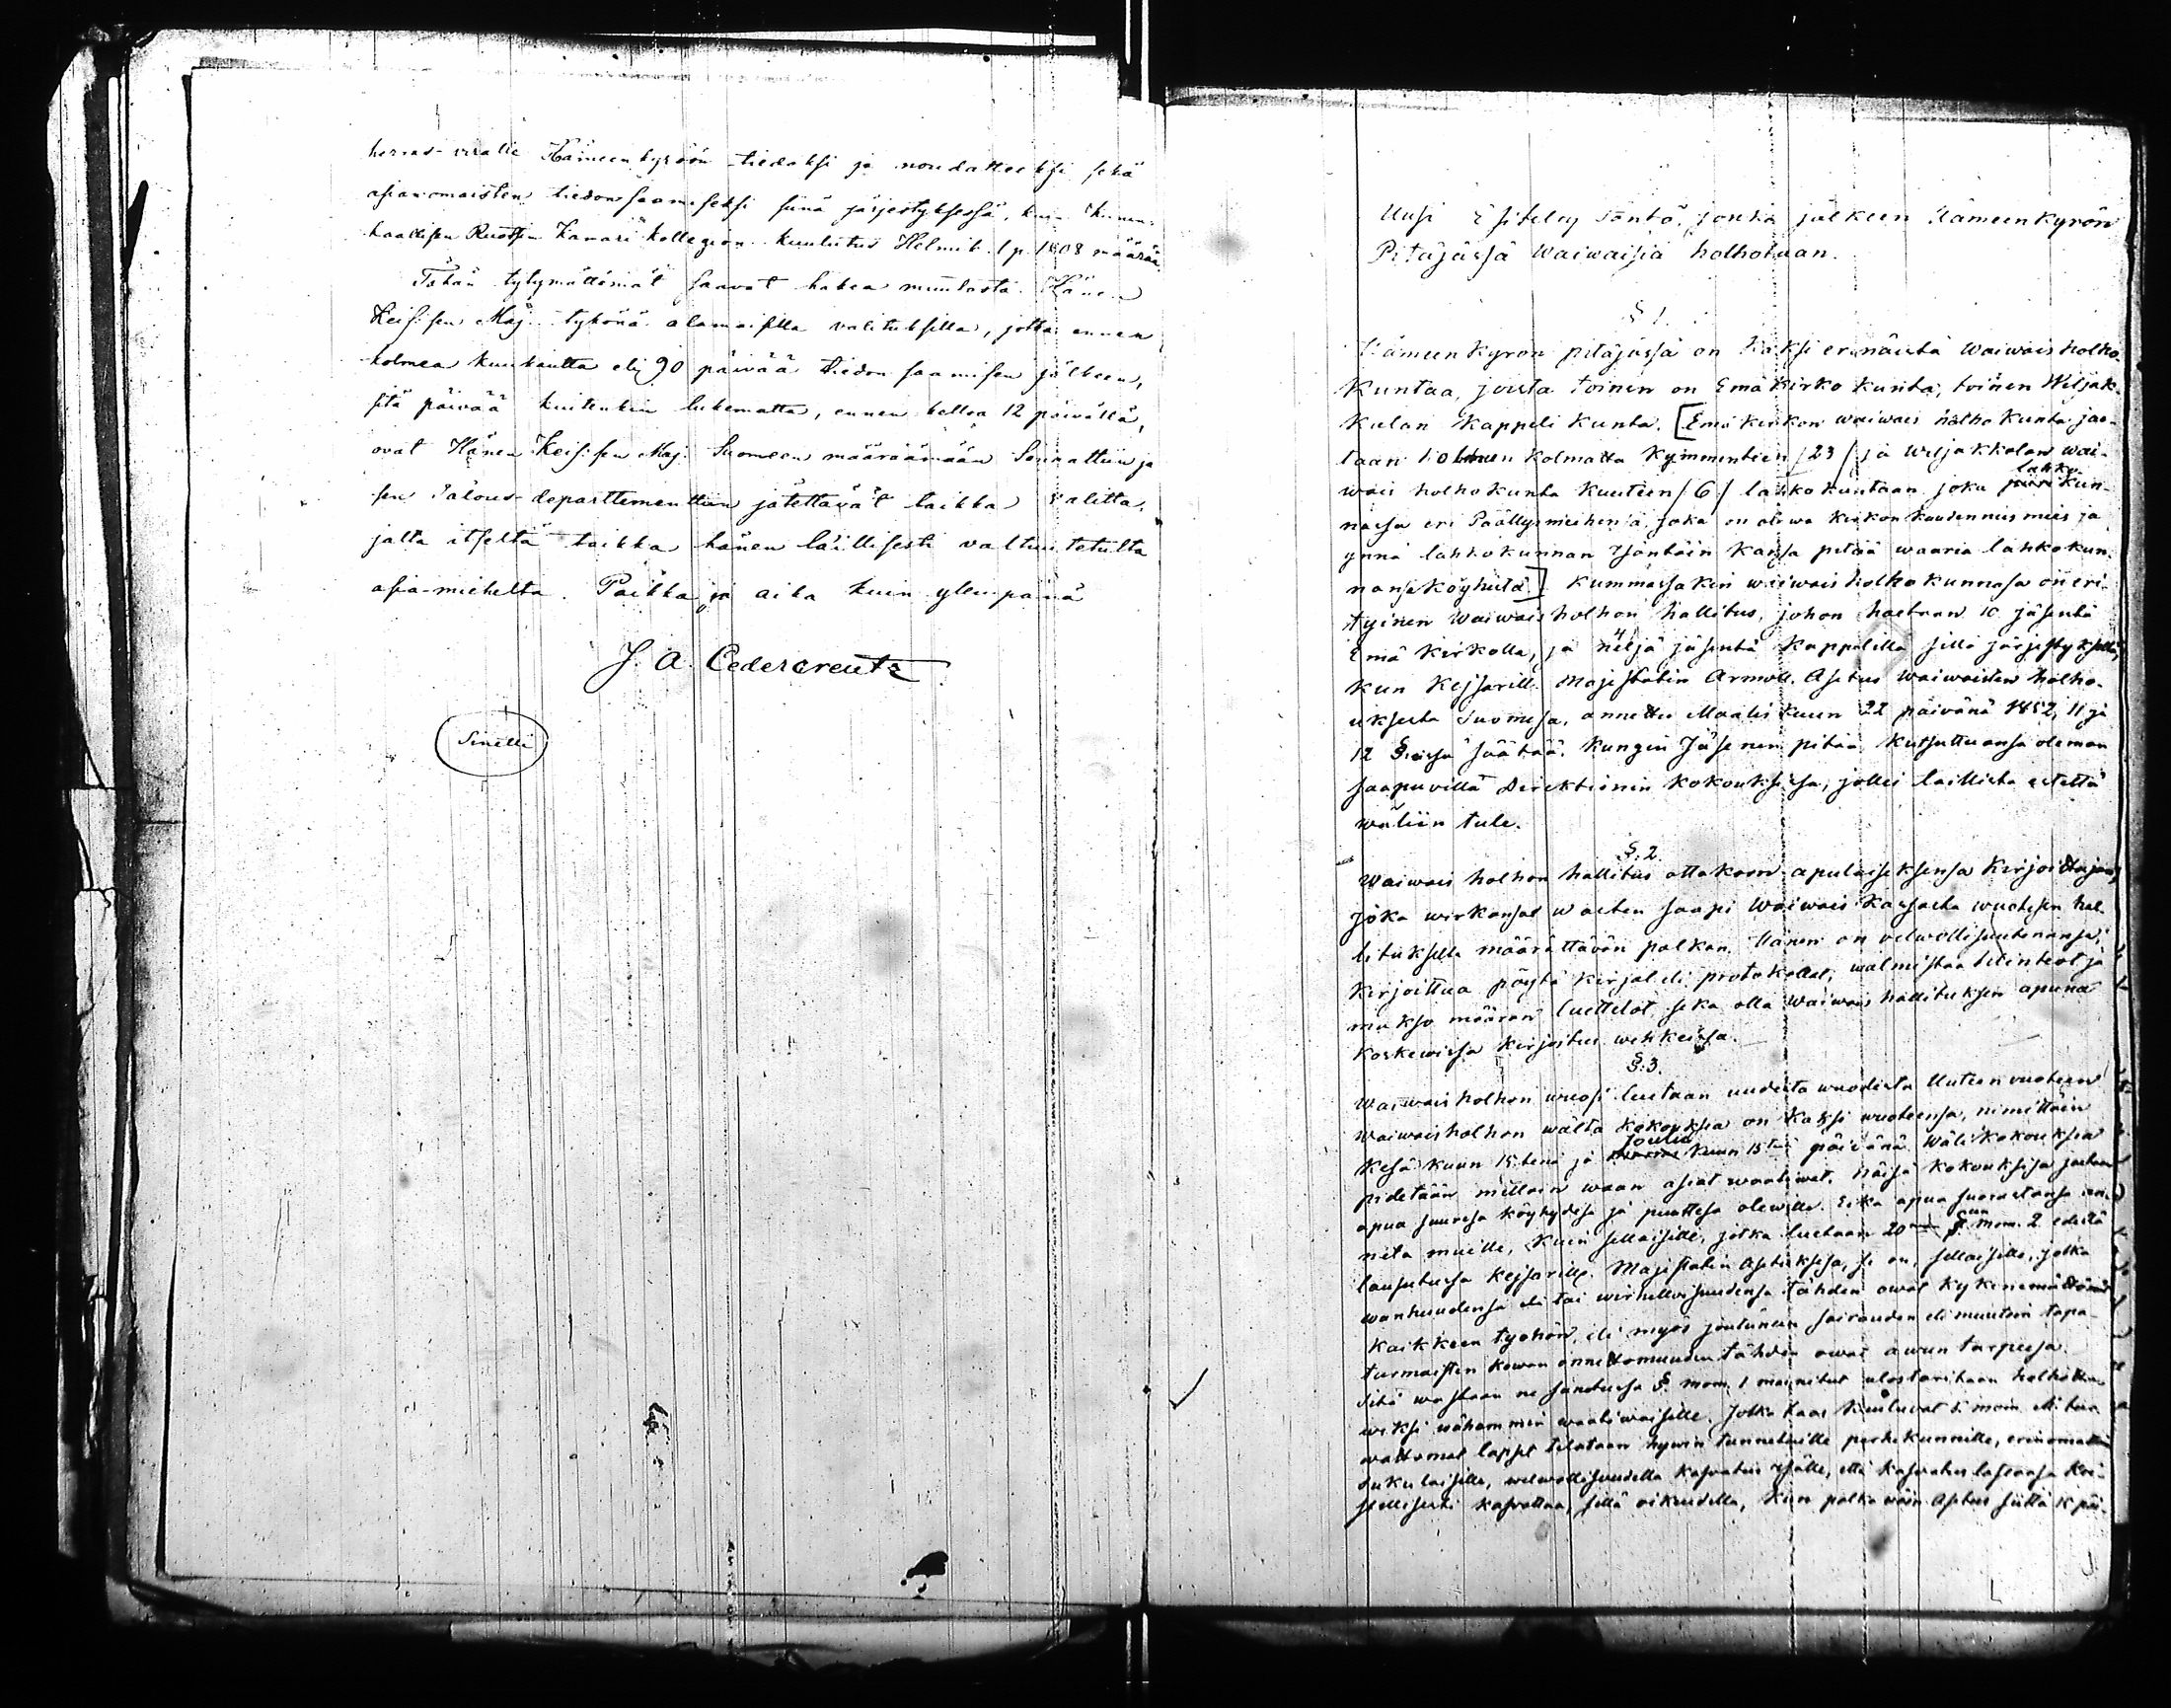 herras-viralle Hämeenkyröön tiedoksi ja noudatteeksi sekä
asianomaisten tiedonsaamiseksi siinä järjestyksessä, kuin Kunin-
kaallisen Ruotsin Kamari kollegion kuulutus Helmik. 1 p. 1808 määrää.
Tähän tytymättömät saavat hakea muutosta Hänen
Keis:sen Maj: tykönä alamaisilla valituksilla, jotka ennen
kolmea kuukautta eli 90 päivää tiedon saamisen jälkeen,
sitä päivää kuitenkin lukematta, ennen kelloa 12 päivällä,
ovat Hänen Keis:sen Maj: Suomeen määräämään Senaattiin ja
sen Talous-departtementtiin jätettävät taikka valitta-
jalta itseltä taikka hänen laillisesti valtuutetulta
asia-mieheltä. Paikka ja aika kuin ylempänä
J. A. Cedercreutz
Sinetti
Uusi Esitelty Sääntö, jonka jälkeen Hämeenkyrön
Pitäjässä Waiwaisia holhotaan.
§ 1.
Hämeenkyrön pitäjässä on kaksi erinäistä Waiwaisholho-
kuntaa, joista toinen on Emäkirko kunta, toinen Wiljak-
kalan kappeli kunta. [Emä kirkon waiwais holho kunta jae-
taan kolmen kolmatta kymmenteen /23/ ja Wiljakkalan wai-
wais holhokunta kuuteen /6/ lahkokuntaan joka lahko-kun-
nassa eri Päällysmiehensä, joka on olewa kirkon kuudennusmies ja
ynnä lahkokunnan Isäntäin kansa pitää waaria lahkokun-
nansa köyhistä.] Kummassakin waiwaisholhokunnassa on eri-
tyinen Waiwaisholhon hallitus, johon haetaan 10 jäsentä
Emä Kirkolla, ja neljä jäsentä Kappelilla sillä järjestyksellä
kun Kejsarill. Majestetin Armoll. Asetus waiwaisten holho-
uksesta Suomessa, annettu Maaliskuun 22 päivänä 1852, 11 ja
12 §:issä säätää. Kungin Jäsenen pitää kutsuttuansa oleman
saapuvilla Direktionin kokouksissa, jollei laillista estettä
wäliin tule.
§. 2.
Waiwais holhon hallitus ottakoon apulaiseksensa Kirjoittajan,
joka wirkansat wasten saapi Waiwais Kassasta wuotisen hal-
lituksella määrättävän palkan. Hänen on velwollisuutenansa,
kirjoittaa pöytä kirjat eli protokollat, walmistaa tilinteot ja
makso määrän luettelot, sekä olla Waiwais hallituksen apuna
koskewissa kirjoitus wehkeissä.
§. 3.
Waiwais holhon wuosi luetaan uudesta wuodesta Uuteen vuoteen
Waiwaisholhon wälta kokouksia on kaksi wuoteensa, nimittäin
Kesä kuun 15:tenä ja Joulu kuun 15:tenä päivänä. Wäli kokouksia
pidetään milloin waan asiat waativat. Näissä kokouksissa jaetaan
apua suuressa köyhydessä ja puutteessa olewille. Eikä apua
nita muille, kuin sellaisille, jotka luetaan 20 §. mom. 2 edestä
lausutussa Kejsarill. Majestetin Asetuksessa, se on, sellaisille, jotka
wanhuudensa eli tai wirhellisuudensa tähden owat kykenemättömät
kaikkeen työhön, eli myös joutuneen sairauden eli muutoin tapa-
turmaisten kowan onnettomuuden tähden owat awun tarpeessa.
Sitä wastaan ne sanotussa §. mom. 1 mainitut ulostaritaan holhotta-
wiksi wähemmin waatiwaisille. Jotka taas kuuluvat 3 mom. eli tur-
wattomat lapset tilataan hywin tunnetuille perhekunnille, erinomattain
sukulaisille, welwollisuudella kasvatus Isälle, että kasvatus lastansa kri-
stillisesti kaswattaa, sillä oikeudella, kun palka wäin Asetus siittä